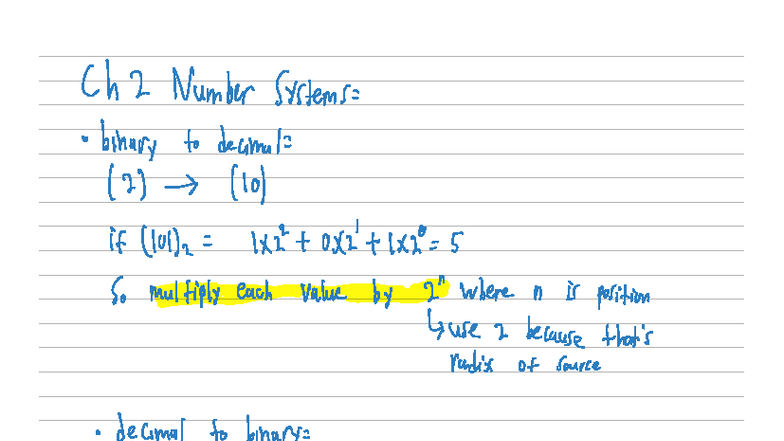 Ch 2 Number Systems:
• binary to decimal:
(2) → (10)
if (101)₂ = 1x2² + 0x2¹ + 1x2⁰ = 5
So multiply each value by 2ⁿ where n is position
↳ use 2 because that's
radix of source
• decimal to binary: